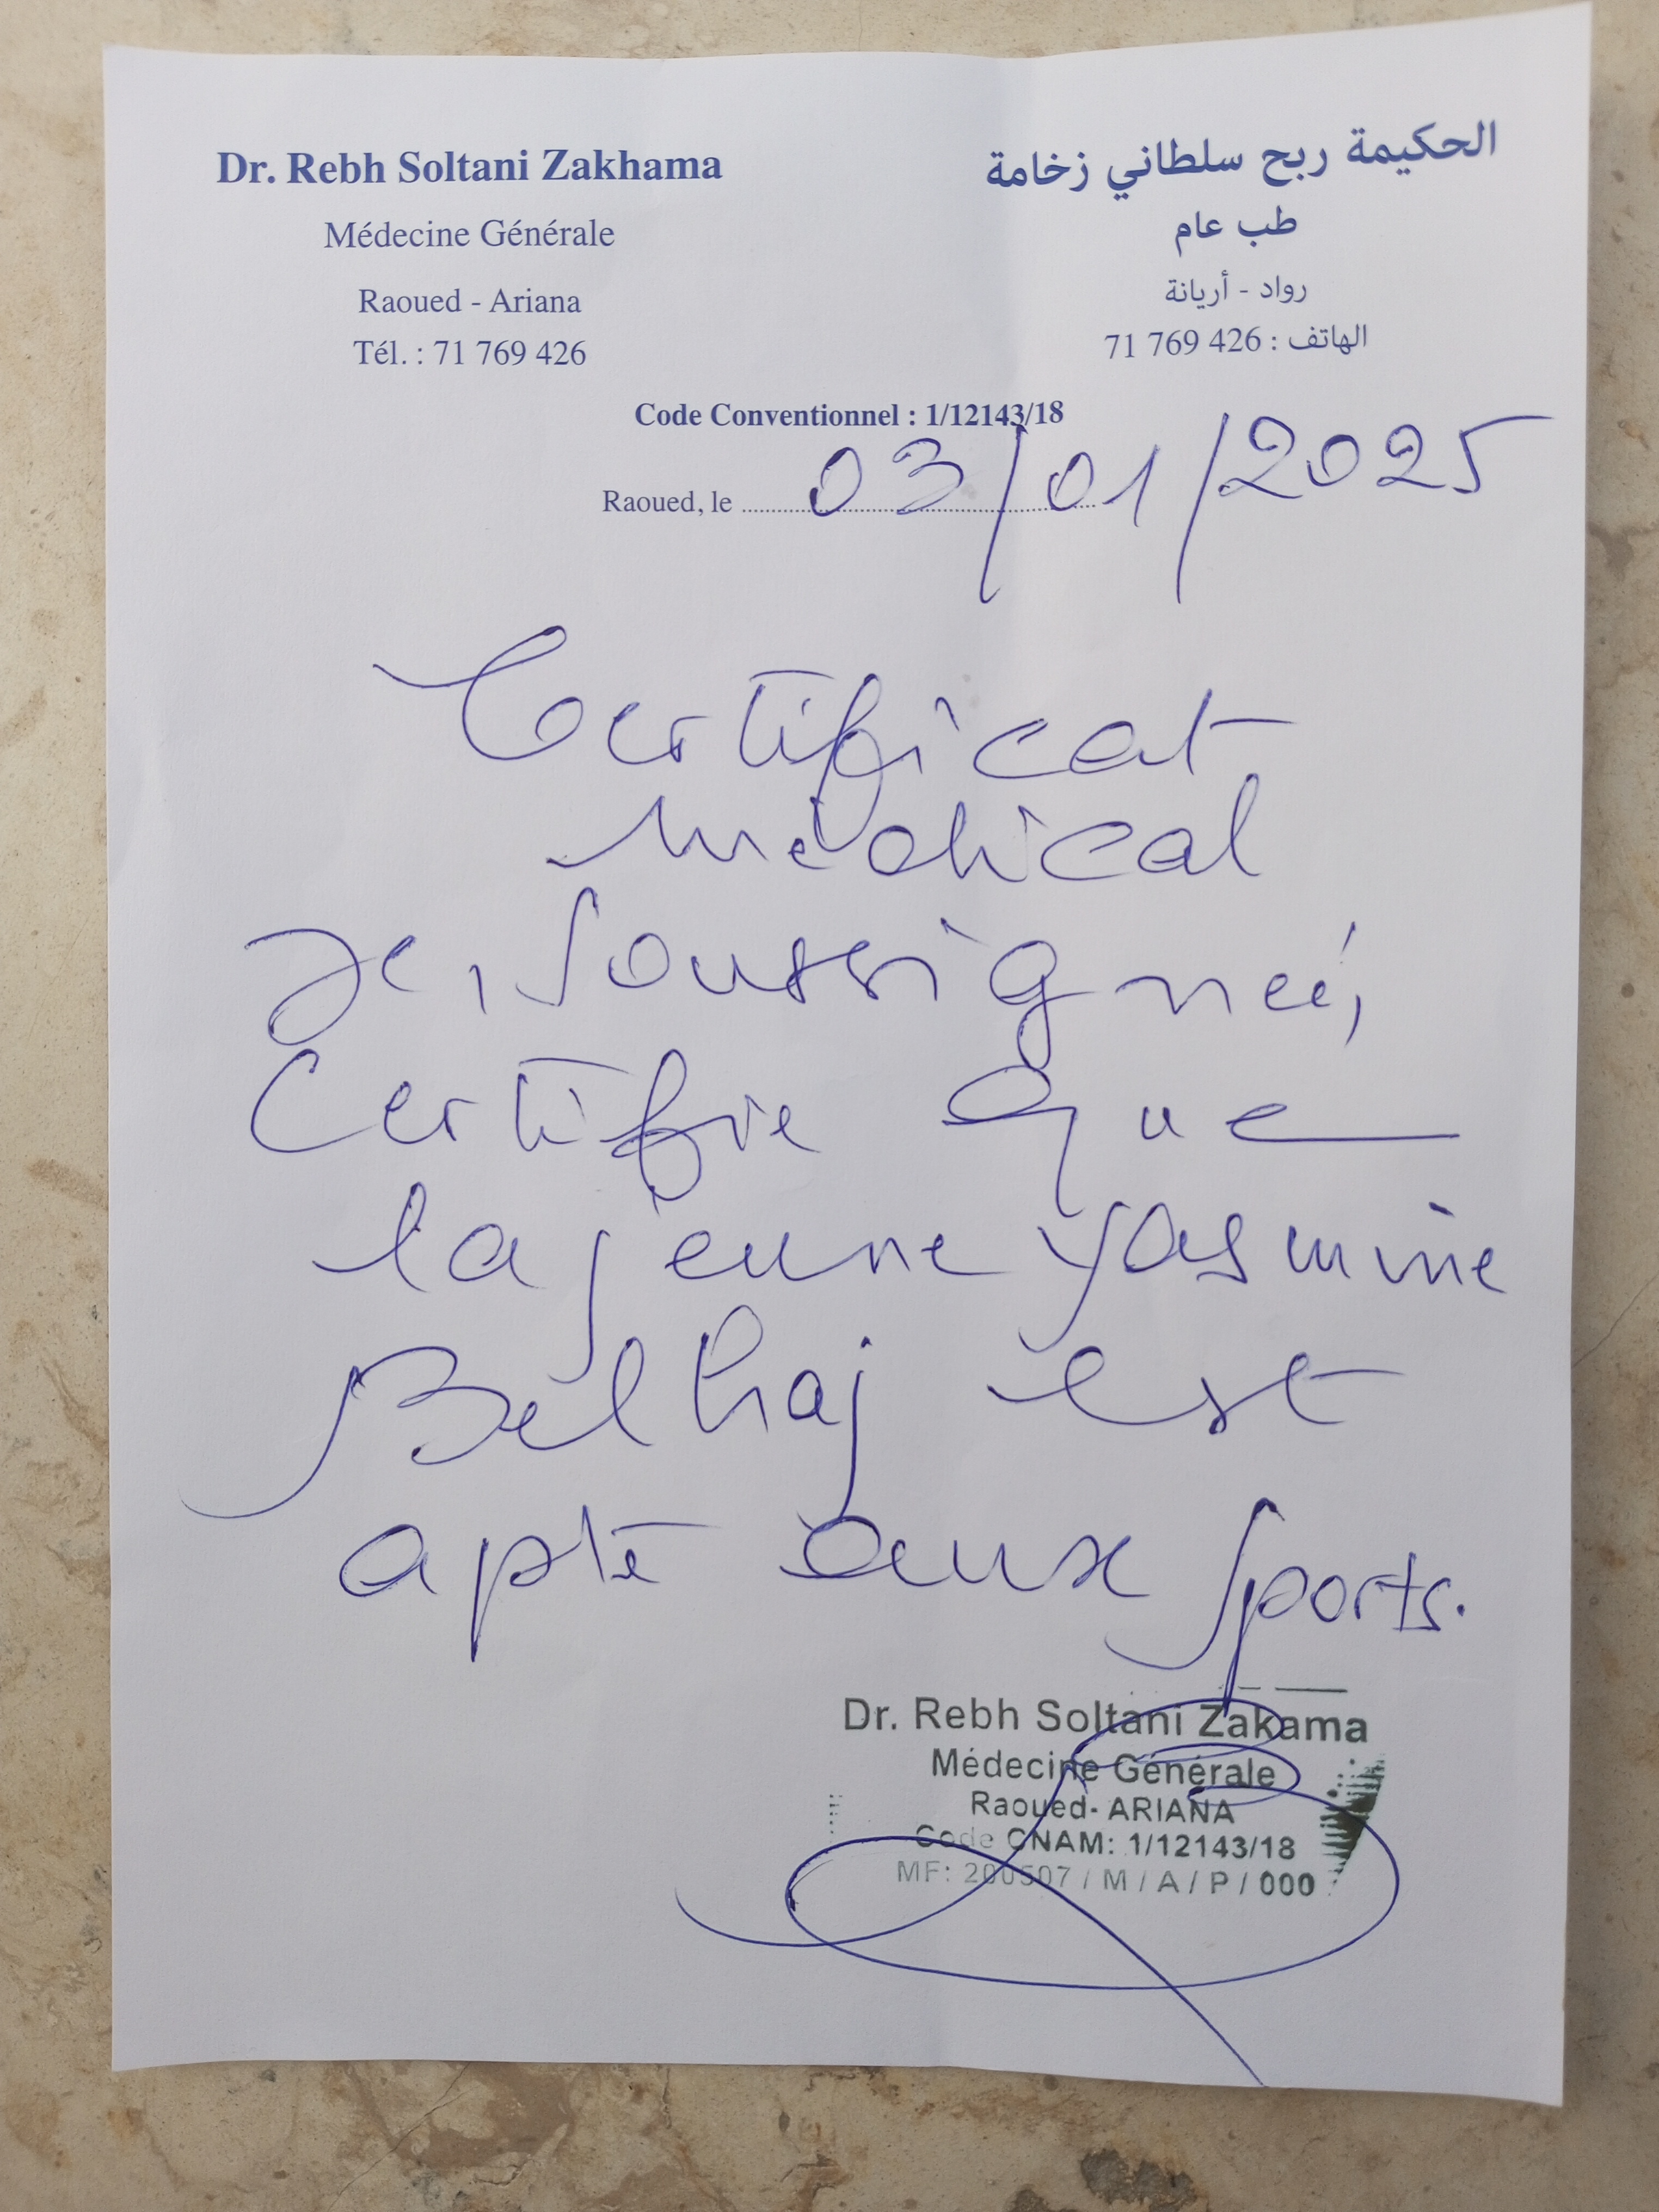 Dr. Rebh Soltani Zakhama
Médecine Générale
Raoued - Ariana
Tél. : 71 769 426
الحكيمة ربح سلطاني زخامة
طب عام
رواد - أريانة
الهاتف : 426 769 71
Code Conventionnel : 1/12143/18
Raoued, le 03/01/2025
Certificat
médical
Je, soussignée,
Certifie que
la jeune Yasmine
Belhaj est
apte aux sports.
Dr. Rebh Soltani Zakama
Médecine Générale
Raoued- ARIANA
Code CNAM: 1/12143/18
MF: 200507 / M / A / P / 000